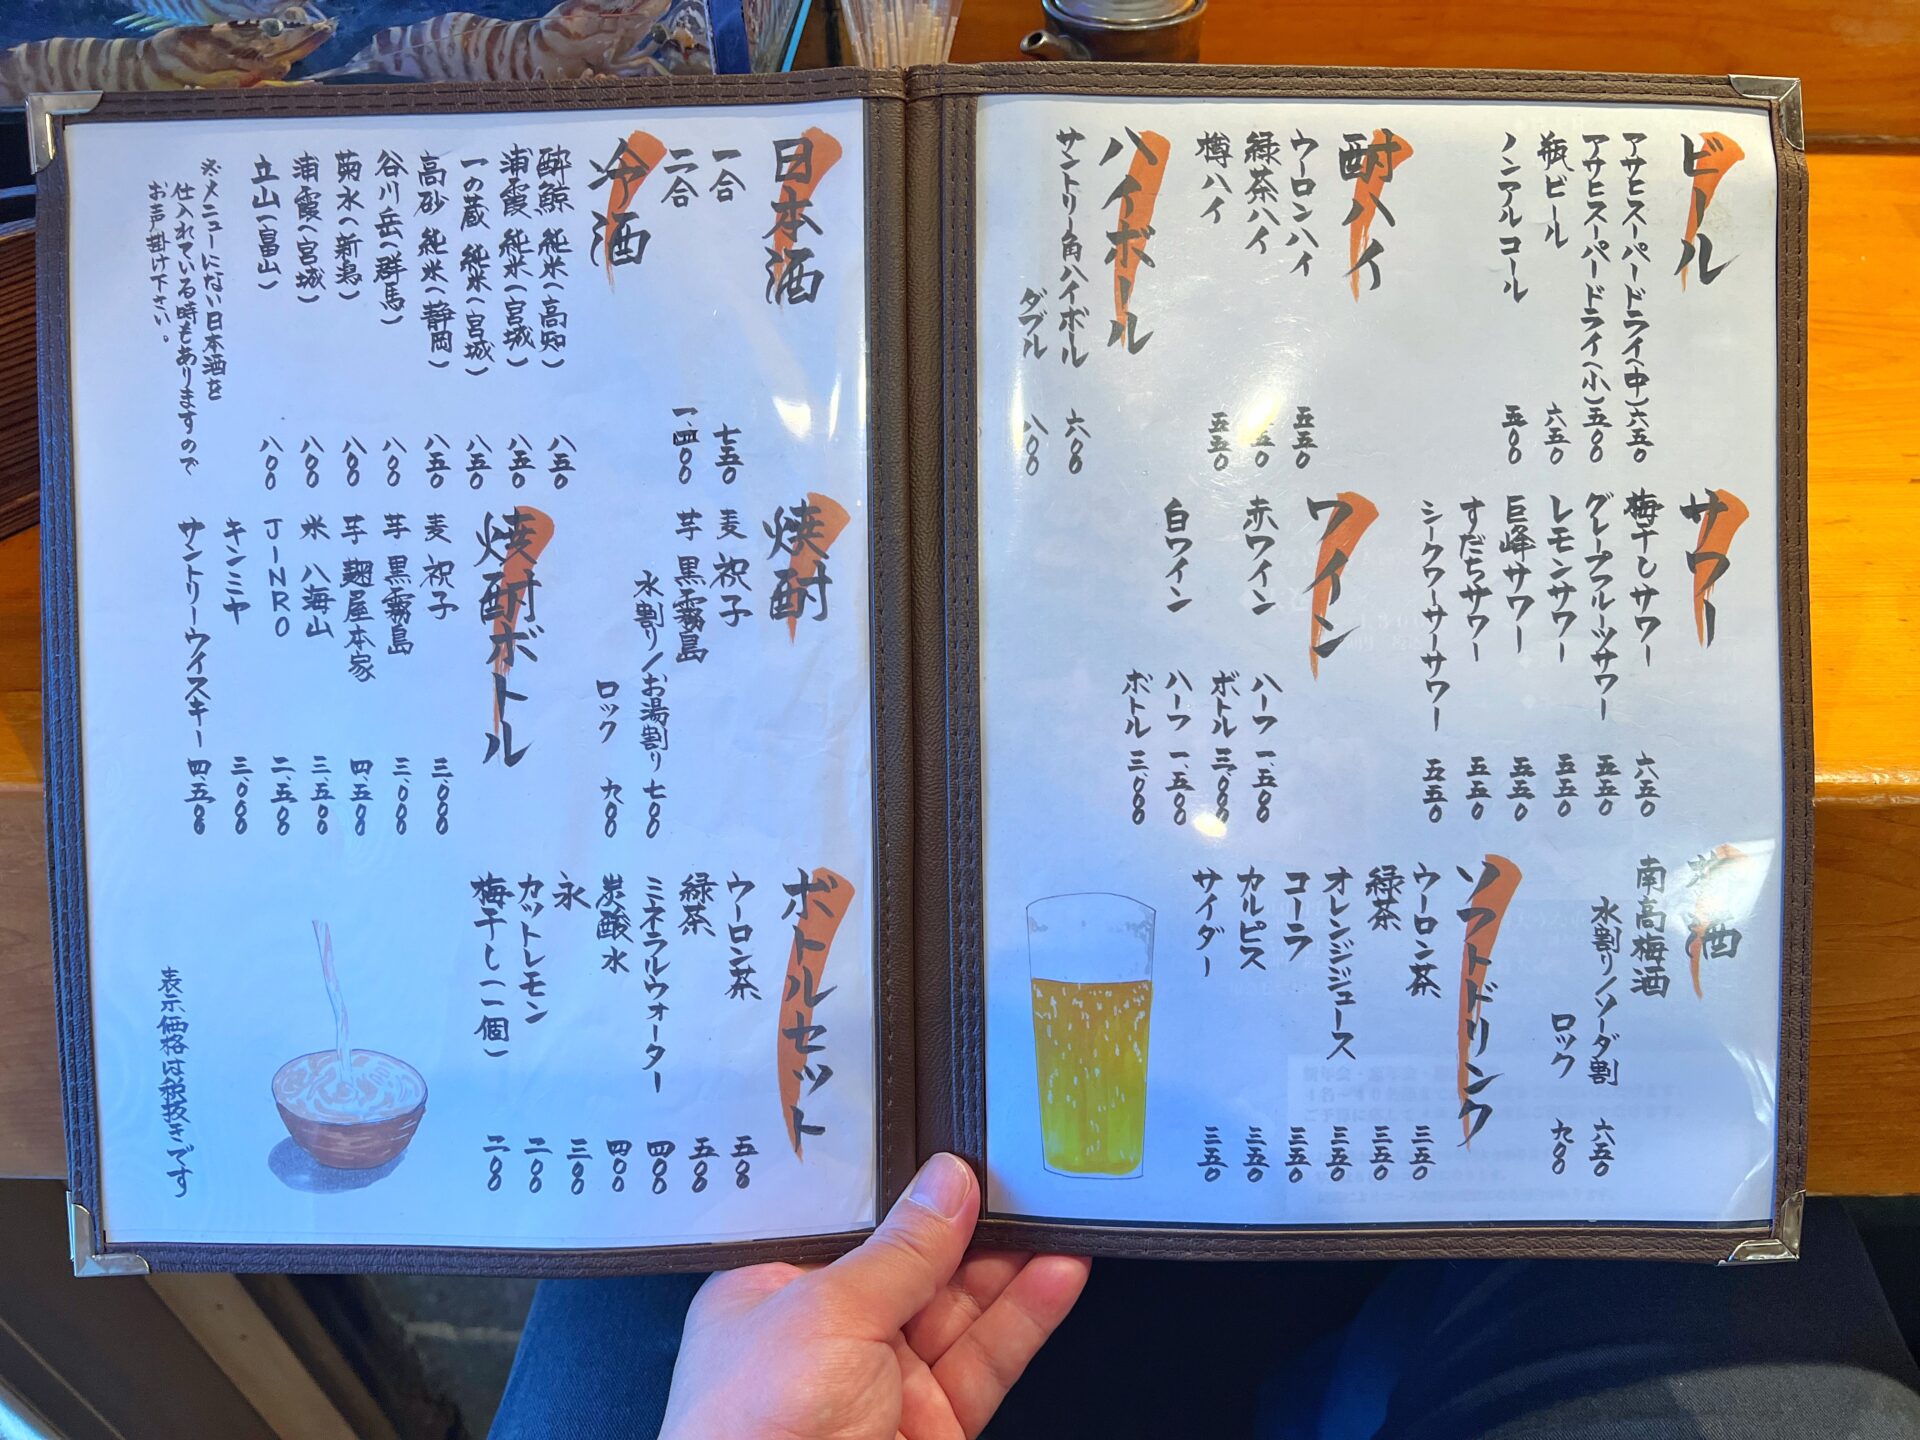 ビール
アサヒスーパードライ(中)六五〇
アサヒスーパードライ(小)五〇〇
瓶ビール 六五〇
ノンアルコール 五〇〇
酎ハイ
ウーロンハイ 五五〇
緑茶ハイ 五五〇
樽ハイ 五五〇
ハイボール
サントリー角ハイボール 六〇〇
ダブル 八〇〇
サワー
梅干しサワー 六五〇
グレープフルーツサワー 五五〇
レモンサワー 五五〇
巨峰サワー 五五〇
すだちサワー 五五〇
シークワーサーサワー 五五〇
ワイン
赤ワイン ハーフ 一、五〇〇
ボトル 三、〇〇〇
白ワイン ハーフ 一、五〇〇
ボトル 三、〇〇〇
酒
南高梅酒
水割り/ソーダ割 六五〇
ロック 九〇〇
ソフトドリンク
ウーロン茶 三五〇
緑茶 三五〇
オレンジジュース 三五〇
コーラ 三五〇
カルピス 三五〇
サイダー 三五〇
日本酒
一合 七五〇
二合 一、四〇〇
冷酒
酔鯨 純米(高知) 八五〇
浦霞 純米(宮城) 八五〇
一の蔵 純米(宮城) 八五〇
高砂 純米(静岡) 八五〇
谷川岳(群馬) 八〇〇
菊水(新潟) 八〇〇
浦霞(宮城) 八〇〇
立山(富山) 八〇〇
※メニューにない日本酒を
仕入れている時もありますので
お声掛け下さい。
焼酎
麦 祝子
芋 黒霧島
水割り/お湯割り 七〇〇
ロック 九〇〇
焼酎ボトル
麦 祝子 三、〇〇〇
芋 黒霧島 三、〇〇〇
芋 麹屋本家 四、五〇〇
米 八海山 三、五〇〇
JINRO 二、五〇〇
キンミヤ 三、〇〇〇
サントリーウイスキー 四、五〇〇
ボトルセット
ウーロン茶 五〇〇
緑茶 五〇〇
ミネラルウォーター 四〇〇
炭酸水 四〇〇
氷 三〇〇
カットレモン 二〇〇
梅干し(一個) 二〇〇
表示価格は税抜きです